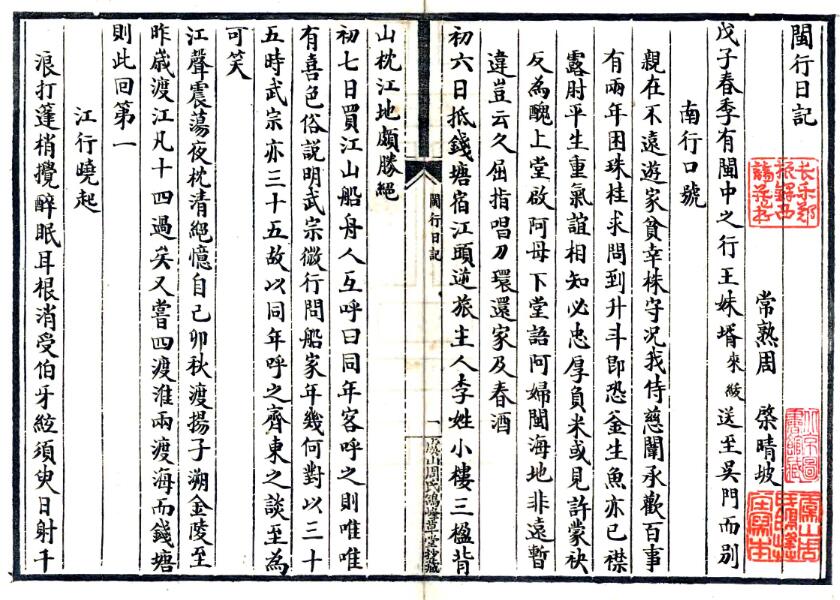 閩行日記
常熟周 棨晴坡
戊子春季有閩中之行王妹壻來綏送至吳門而別
南行口號
親在不遠遊家貧幸株守況我侍慈闈承歡百事
有兩年困珠桂求問到升斗卽恐釜生魚亦已襟
露肘平生重氣誼相知必忠厚負米或見許蒙袂
反為醜上堂啟阿母下堂語阿婦閩海地非遠暫
違豈云久屈指唱刀環還家及春酒
初六日抵錢塘宿江頭逆旅主人李姓小樓三楹背
閩行日記
一
虞山周氏鴿峰草堂鈔藏
山枕江地頗勝絕
初七日買江山船舟人互呼曰同年客呼之則唯唯
有喜色俗說明武宗微行問船家年幾何對以三十
五時武宗亦三十五故以同年呼之齊東之談至為
可笑
江聲震蕩夜枕清絕憶自己卯秋渡揚子溯金陵至
昨歲渡江凡十四過矣又嘗四渡淮兩渡海而錢塘
則此回第一
江行曉起
浪打篷梢攪醉眠耳根消受伯牙絃須臾日射千